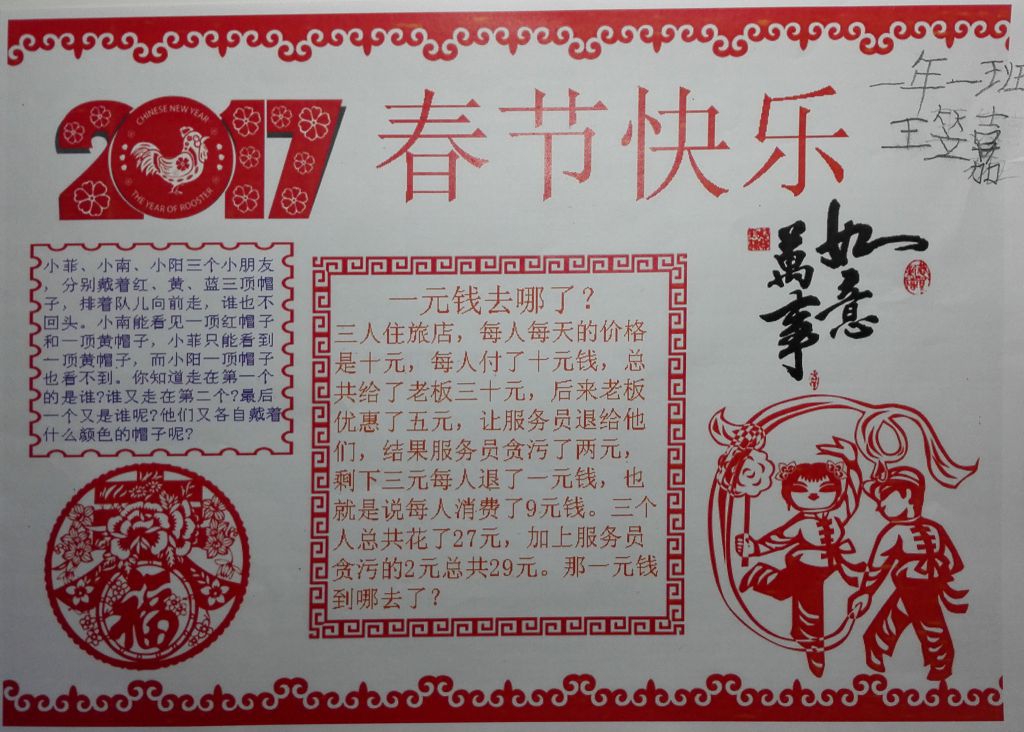 2017
CHINESE NEW YEAR
THE YEAR OF ROOSTER
春节快乐
一年一班
王笠嘉
小菲、小南、小阳三个小朋友
,分别戴着红、黄、蓝三顶帽
子,排着队儿向前走,谁也不
回头。小南能看见一顶红帽子
和一顶黄帽子,小菲只能看到
一顶黄帽子,而小阳一顶帽子
也看不到。你知道走在第一个
的是谁?谁又走在第二个?最后
一个又是谁呢?他们又各自戴着
什么颜色的帽子呢?
一元钱去哪了?
三人住旅店,每人每天的价格
是十元,每人付了十元钱,总
共给了老板三十元,后来老板
优惠了五元,让服务员退给他
们,结果服务员贪污了两元,
剩下三元每人退了一元钱,也
就是说每人消费了9元钱。三个
人总共花了27元,加上服务员
贪污的2元总共29元。那一元钱
到哪去了?
如意
萬事
福